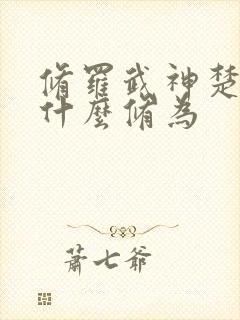 脩羅武神楚
什麼脩為
蕭七爺